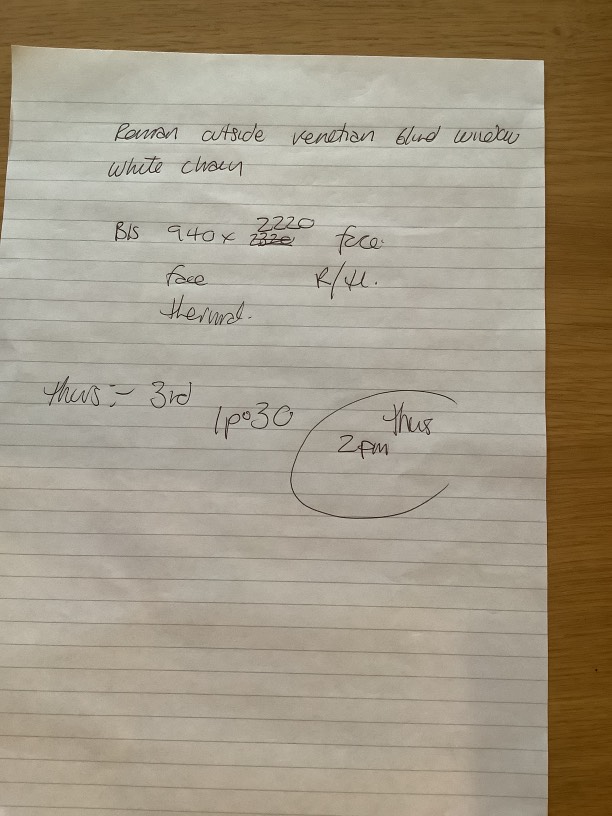 Roman outside venetian blind window
white chain
B/S 940 x 2220 face
face R/H.
thermal.
thurs :- 3rd
1p°30
thurs
2pm